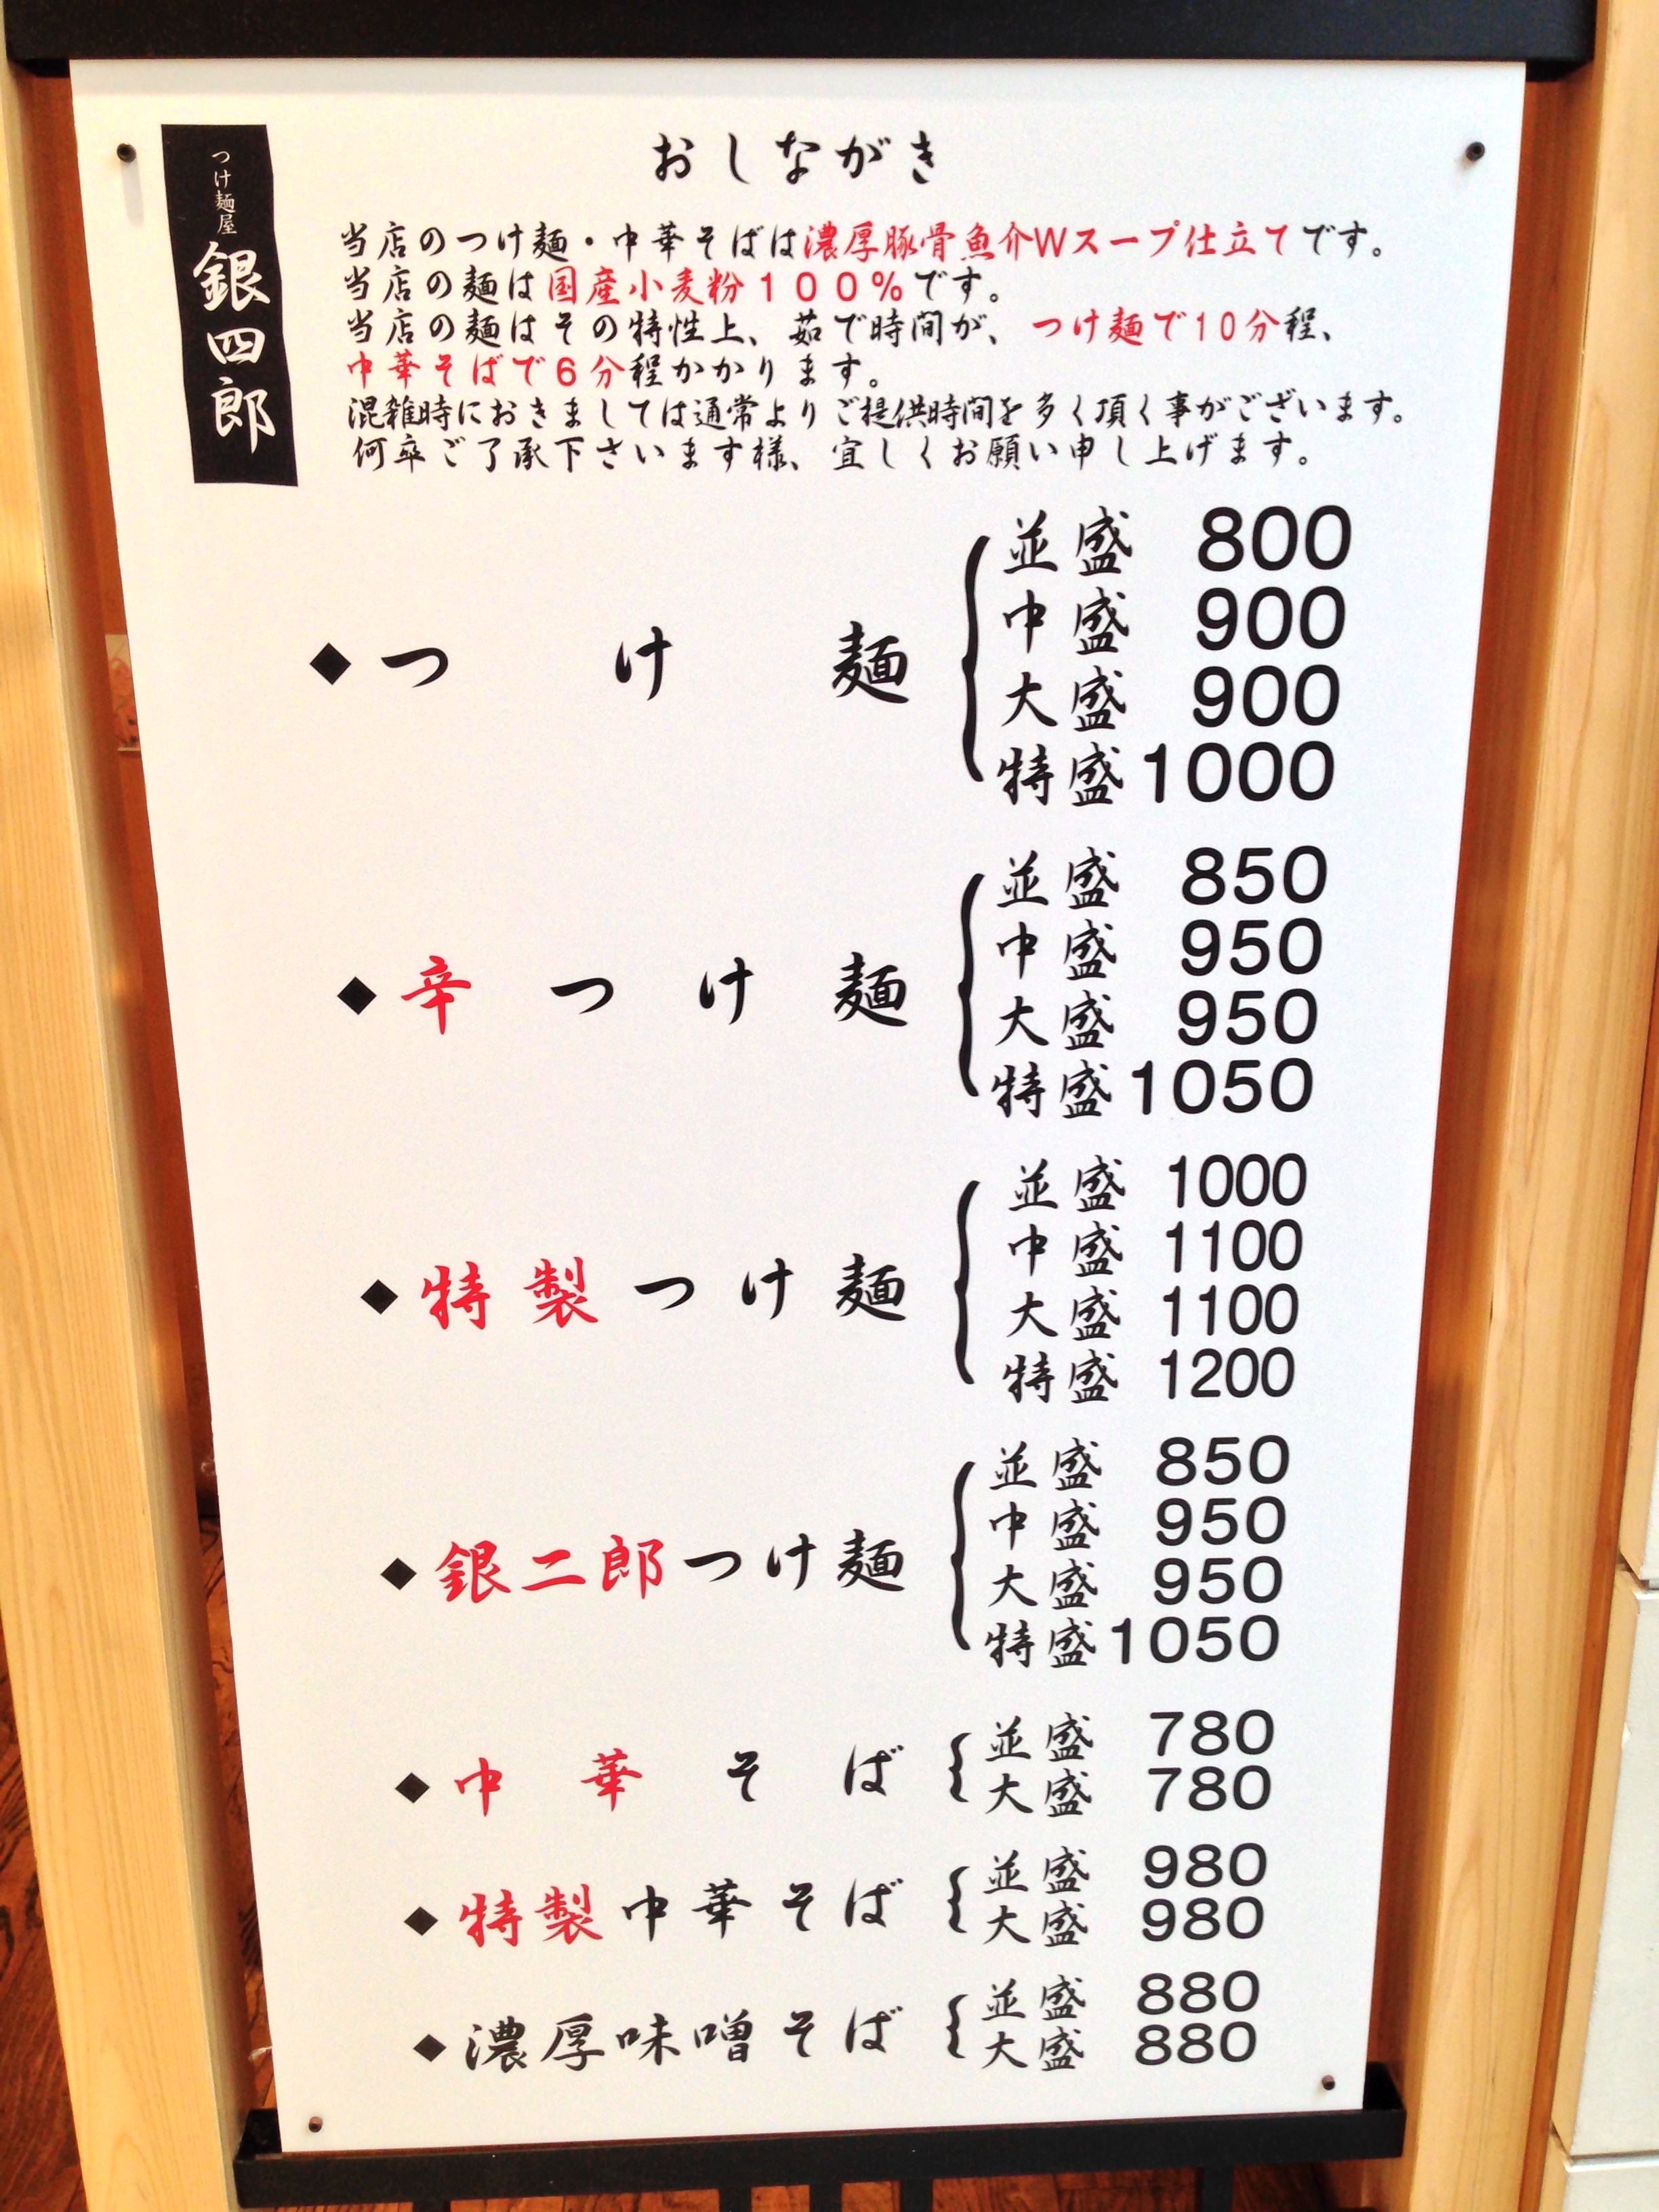 おしながき
つけ麺屋
銀四郎
当店のつけ麺・中華そばは濃厚豚骨魚介Wスープ仕立てです。
当店の麺は国産小麦粉１００％です。
当店の麺はその特性上、茹で時間が、つけ麺で10分程、
中華そばで６分程かかります。
混雑時におきましては通常よりご提供時間を多く頂く事がございます。
何卒ご了承下さいます様、宜しくお願い申し上げます。
◆つけ麺
並盛 800
中盛 900
大盛 900
特盛 1000
◆辛つけ麺
並盛 850
中盛 950
大盛 950
特盛 1050
◆特製つけ麺
並盛 1000
中盛 1100
大盛 1100
特盛 1200
◆銀二郎つけ麺
並盛 850
中盛 950
大盛 950
特盛 1050
◆中華そば
並盛 780
大盛 780
◆特製中華そば
並盛 980
大盛 980
◆濃厚味噌そば
並盛 880
大盛 880